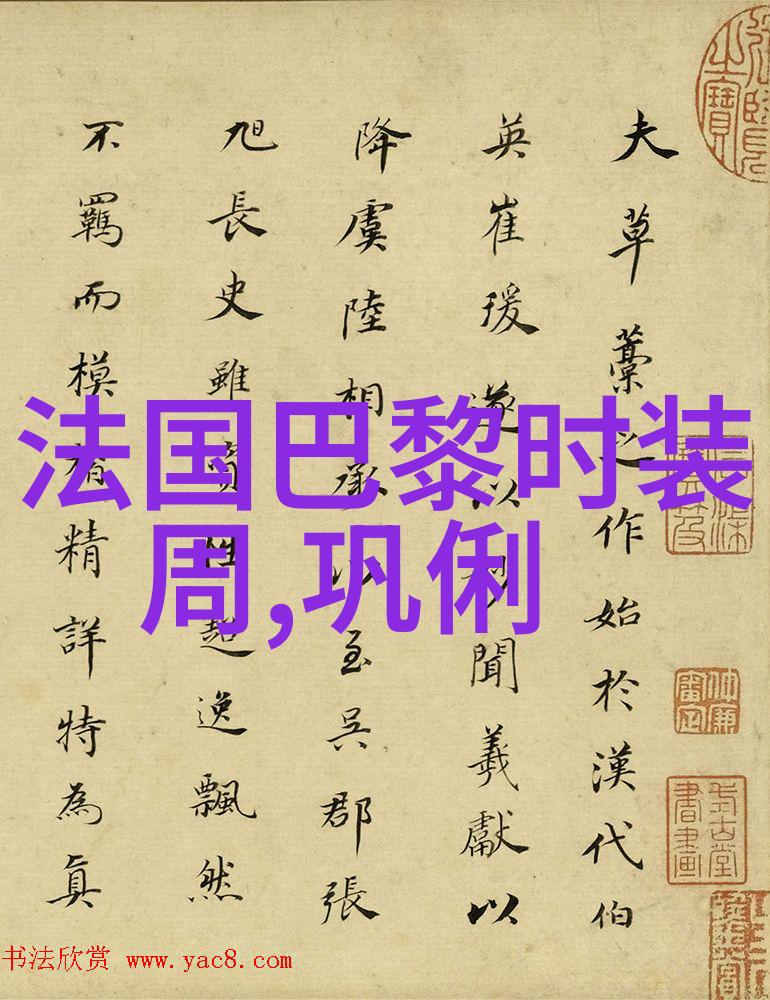 夫草藁之作始於漢代伯
英崔瑗遂以妙聞羲獻以
降虞陸相承以至吳郡張
旭長史雖資性超逸飄然
不羈而模楷精詳特為真
法国巴黎时装
周,巩俐
书法欣赏 www.yac8.com